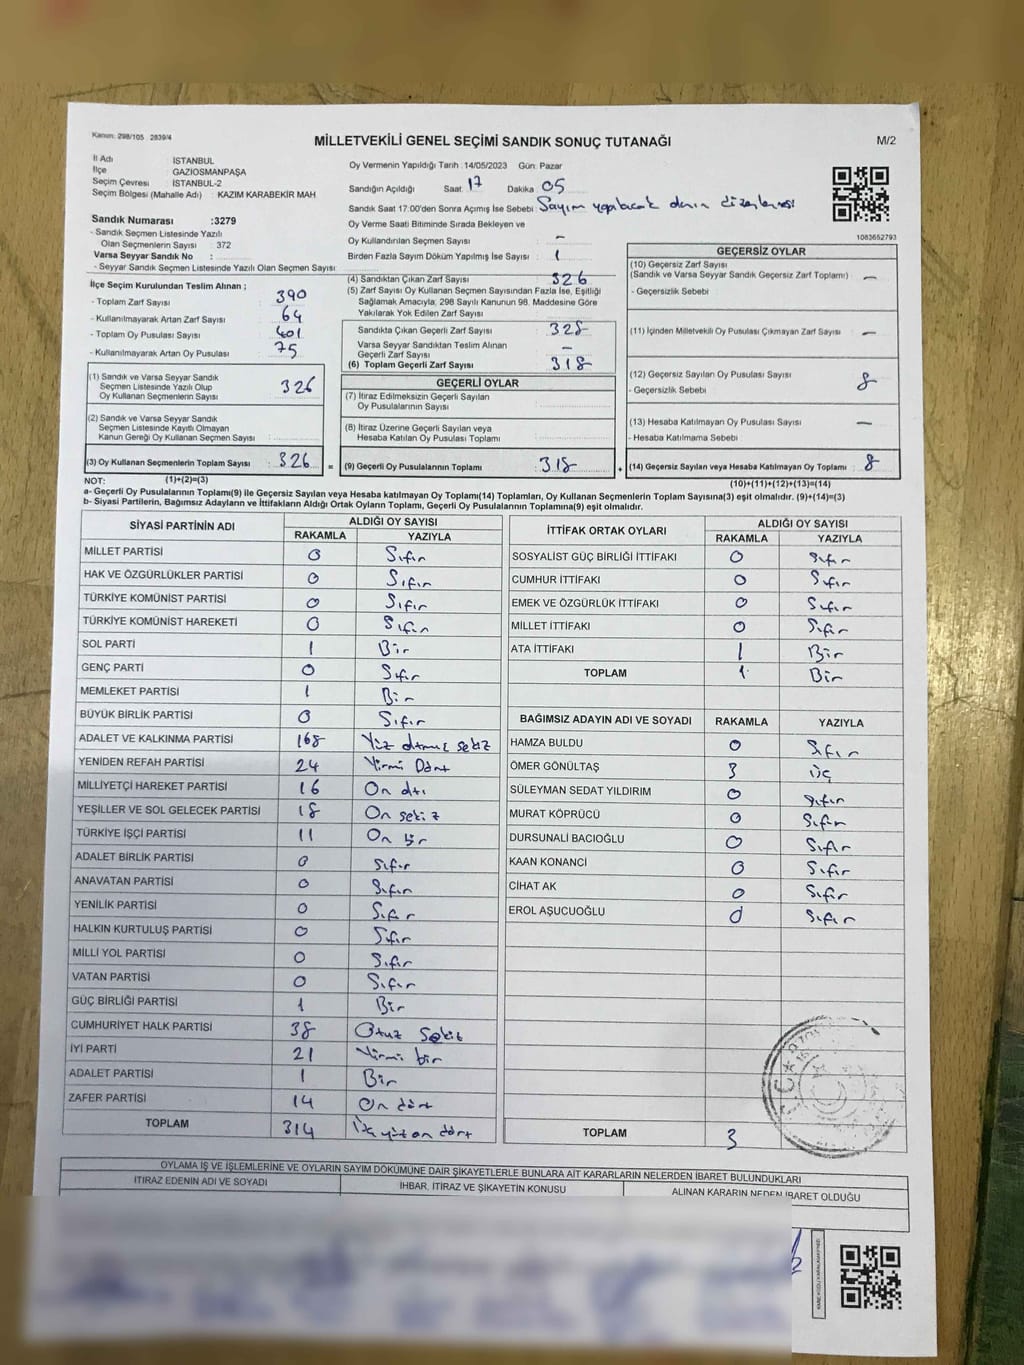 Kanun: 298/105 2839/4
MİLLETVEKİLİ GENEL SEÇİMİ SANDIK SONUÇ TUTANAĞI
M/2
İl Adı İSTANBUL
İlçe GAZİOSMANPAŞA
Seçim Çevresi İSTANBUL-2
Seçim Bölgesi (Mahalle Adı) : KAZIM KARABEKİR MAH
Sandık Numarası :3279
- Sandık Seçmen Listesinde Yazılı
Olan Seçmenlerin Sayısı : 372
Varsa Seyyar Sandık No :
- Seyyar Sandık Seçmen Listesinde Yazılı Olan Seçmen Sayısı
Oy Vermenin Yapıldığı Tarih :14/05/2023 Gün: Pazar
Sandığın Açıldığı Saat: 17 Dakika 05
Sandık Saat 17:00'den Sonra Açımış İse Sebebi Sayım yapılacak
Oy Verme Saati Bitiminde Sırada Bekleyen ve
Oy Kullandırılan Seçmen Sayısı : –
Birden Fazla Sayım Döküm Yapılmış İse Sayısı : 1
1083652793
İlçe Seçim Kurulundan Teslim Alınan ;
- Toplam Zarf Sayısı : 390
- Kullanılmayarak Artan Zarf Sayısı : 64
- Toplam Oy Pusulası Sayısı : 401
- Kullanılmayarak Artan Oy Pusulası : 75
(1) Sandık ve Varsa Seyyar Sandık
Seçmen Listesinde Yazılı Olup
Oy Kullanan Seçmenlerin Sayısı : 326
(2) Sandık ve Varsa Seyyar Sandık
Seçmen Listesinde Kayıtlı Olmayan
Kanun Gereği Oy Kullanan Seçmen Sayısı :
(3) Oy Kullanan Seçmenlerin Toplam Sayısı : 326
(4) Sandıktan Çıkan Zarf Sayısı : 326
(5) Zarf Sayısı Oy Kullanan Seçmen Sayısından Fazla İse, Eşitliği
Sağlamak Amacıyla, 298 Sayılı Kanunun 98. Maddesine Göre
Yakılarak Yok Edilen Zarf Sayısı :
Sandıkta Çıkan Geçerli Zarf Sayısı : 328
Varsa Seyyar Sandıktan Teslim Alınan
Geçerli Zarf Sayısı : –
(6) Toplam Geçerli Zarf Sayısı : 318
GEÇERLİ OYLAR
(7) İtiraz Edilmeksizin Geçerli Sayılan
Oy Pusulalarının Sayısı :
(8) İtiraz Üzerine Geçerli Sayılan veya
Hesaba Katılan Oy Pusulası Toplamı :
= (9) Geçerli Oy Pusulalarının Toplamı : 318
GEÇERSİZ OYLAR
(10) Geçersiz Zarf Sayısı
(Sandık ve Varsa Seyyar Sandık Geçersiz Zarf Toplamı) : –
- Geçersizlik Sebebi
(11) İçinden Milletvekili Oy Pusulası Çıkmayan Zarf Sayısı : –
(12) Geçersiz Sayılan Oy Pusulası Sayısı : 8
- Geçersizlik Sebebi
(13) Hesaba Katılmayan Oy Pusulası Sayısı : –
- Hesaba Katılmama Sebebi
+ (14) Geçersiz Sayılan veya Hesaba Katılmayan Oy Toplamı : 8
NOT: (1)+(2)=(3)
(10)+(11)+(12)+(13)=(14)
a- Geçerli Oy Pusulalarının Toplamı(9) ile Geçersiz Sayılan veya Hesaba katılmayan Oy Toplamı(14) Toplamları, Oy Kullanan Seçmenlerin Toplam Sayısına(3) eşit olmalıdır. (9)+(14)=(3)
b- Siyasi Partilerin, Bağımsız Adayların ve İttifakların Aldığı Ortak Oyların Toplamı, Geçerli Oy Pusulalarının Toplamına(9) eşit olmalıdır.
SİYASİ PARTİNİN ADI ALDIĞI OY SAYISI
RAKAMLA YAZIYLA
MİLLET PARTİSİ 0 Sıfır
HAK VE ÖZGÜRLÜKLER PARTİSİ 0 Sıfır
TÜRKİYE KOMÜNİST PARTİSİ 0 Sıfır
TÜRKİYE KOMÜNİST HAREKETİ 0 Sıfır
SOL PARTİ 1 Bir
GENÇ PARTİ 0 Sıfır
MEMLEKET PARTİSİ 1 Bir
BÜYÜK BİRLİK PARTİSİ 0 Sıfır
ADALET VE KALKINMA PARTİSİ 168 Yüz altmış sekiz
YENİDEN REFAH PARTİSİ 24 Yirmi Dört
MİLLİYETÇİ HAREKET PARTİSİ 16 On altı
YEŞİLLER VE SOL GELECEK PARTİSİ 18 On sekiz
TÜRKİYE İŞÇİ PARTİSİ 11 On bir
ADALET BİRLİK PARTİSİ 0 Sıfır
ANAVATAN PARTİSİ 0 Sıfır
YENİLİK PARTİSİ 0 Sıfır
HALKIN KURTULUŞ PARTİSİ 0 Sıfır
MİLLİ YOL PARTİSİ 0 Sıfır
VATAN PARTİSİ 0 Sıfır
GÜÇ BİRLİĞİ PARTİSİ 1 Bir
CUMHURİYET HALK PARTİSİ 38 Otuz Sekiz
İYİ PARTİ 21 Yirmi bir
ADALET PARTİSİ 1 Bir
ZAFER PARTİSİ 14 On dört
TOPLAM 314 Üç yüz on dört
İTTİFAK ORTAK OYLARI ALDIĞI OY SAYISI
RAKAMLA YAZIYLA
SOSYALİST GÜÇ BİRLİĞİ İTTİFAKI 0 Sıfır
CUMHUR İTTİFAKI 0 Sıfır
EMEK VE ÖZGÜRLÜK İTTİFAKI 0 Sıfır
MİLLET İTTİFAKI 0 Sıfır
ATA İTTİFAKI 1 Bir
TOPLAM 1 Bir
BAĞIMSIZ ADAYIN ADI VE SOYADI RAKAMLA YAZIYLA
HAMZA BULDU 0 Sıfır
ÖMER GÖNÜLTAŞ 3 üç
SÜLEYMAN SEDAT YILDIRIM 0 Sıfır
MURAT KÖPRÜCÜ 0 Sıfır
DURSUNALİ BACIOĞLU 0 Sıfır
KAAN KONANCİ 0 Sıfır
CİHAT AK 0 Sıfır
EROL AŞUCUOĞLU 0 Sıfır
TOPLAM 3
OYLAMA İŞ VE İŞLEMLERİNE VE OYLARIN SAYIM DÖKÜMÜNE DAİR ŞİKAYETLERLE BUNLARA AİT KARARLARIN NELERDEN İBARET BULUNDUKLARI
İTİRAZ EDENİN ADI VE SOYADI İHBAR, İTİRAZ VE ŞİKAYETİN KONUSU ALINAN KARARIN NEDEN İBARET OLDUĞU